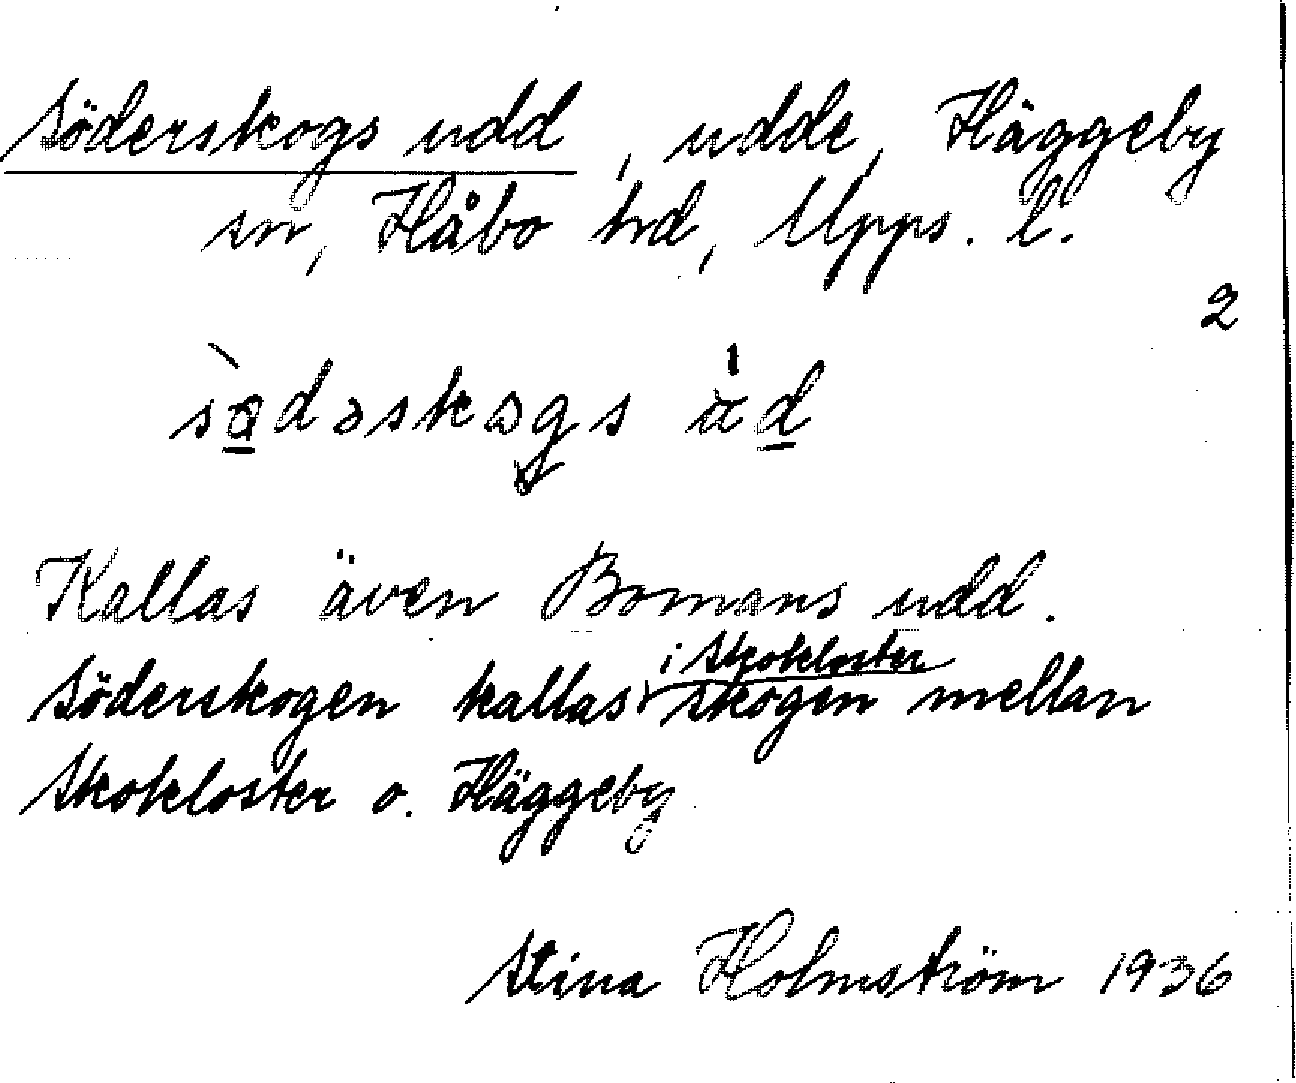 Söderskogs udd, udde, Häggeby
sn, Håbo hd, Upps. l.
2
Kallas även Bomans udd.
i Skokloster
Söderskogen kallas skogen mellan
Skokloster o. Häggeby
Stina Holmström 1936